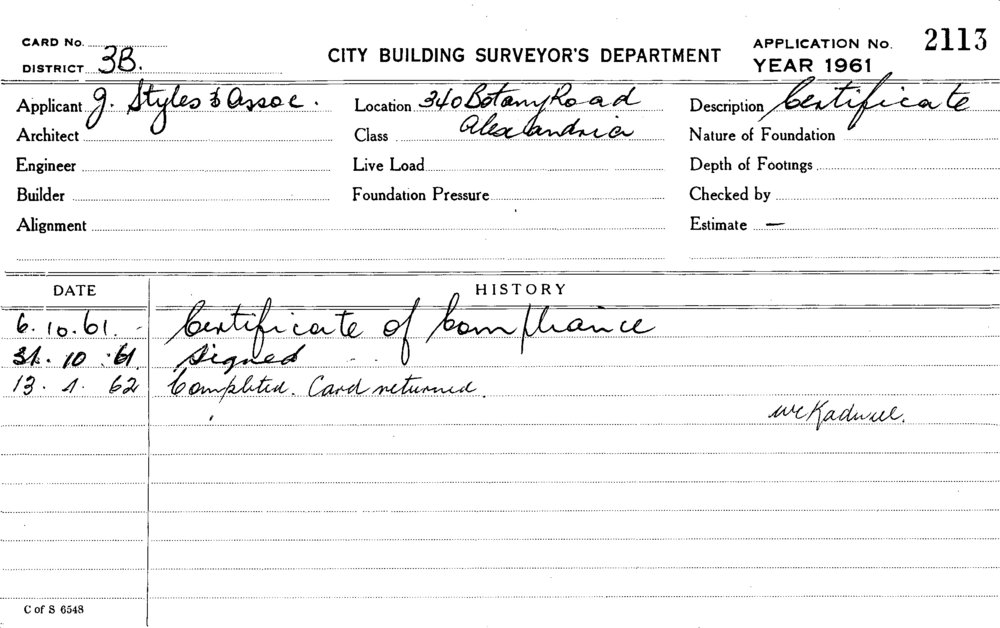 CARD No.
DISTRICT 3B.
CITY BUILDING SURVEYOR'S DEPARTMENT
APPLICATION No. 2113
YEAR 1961
Applicant J. Styles & Assoc.
Location 340 Botany Road
Alexandria
Description Certificate
Architect
Class
Nature of Foundation
Engineer
Live Load
Depth of Footings
Builder
Foundation Pressure
Checked by
Alignment
Estimate —
DATE HISTORY
6. 10. 61. - Certificate of Compliance
31. 10. 61 Signed
13. 1. 62 Completed. Card returned.
C of S 6548